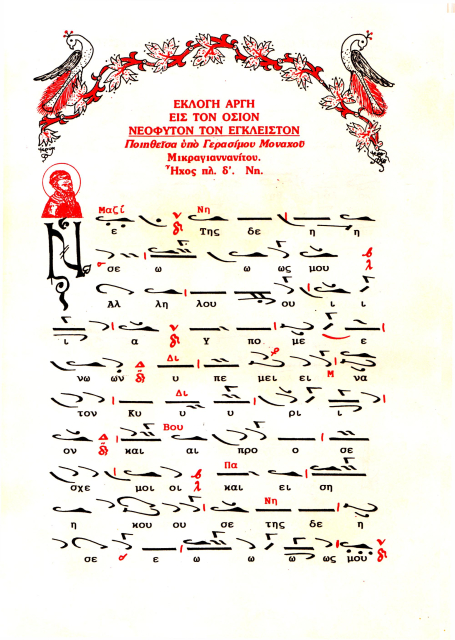 ΕΚΛΟΓΗ ΑΡΓΗ
ΕΙΣ ΤΟΝ ΟΣΙΟΝ
ΝΕΟΦΥΤΟΝ ΤΟΝ ΕΓΚΛΕΙΣΤΟΝ
Ποιηθεῖσα ὑπὸ Γερασίμου Μοναχοῦ
Μικραγιαννανίτου.
Ἦχος πλ. δ'. Νη.
Μαζί Νη
Ν ε Της δε η η
σε ω ω ως μου
Αλ λη λου ου ι ι
ι α Υ πο με ε
Δι
νω ων υ πε μει ει να
Δι Μ
τον Κυ υ υ ρι ι
Βου
ον και αι προ ο σε
Πα
σχε μοι οι και ει ση
Νη
η κου ου σε της δε η
σε ε ω ω ω ως μου